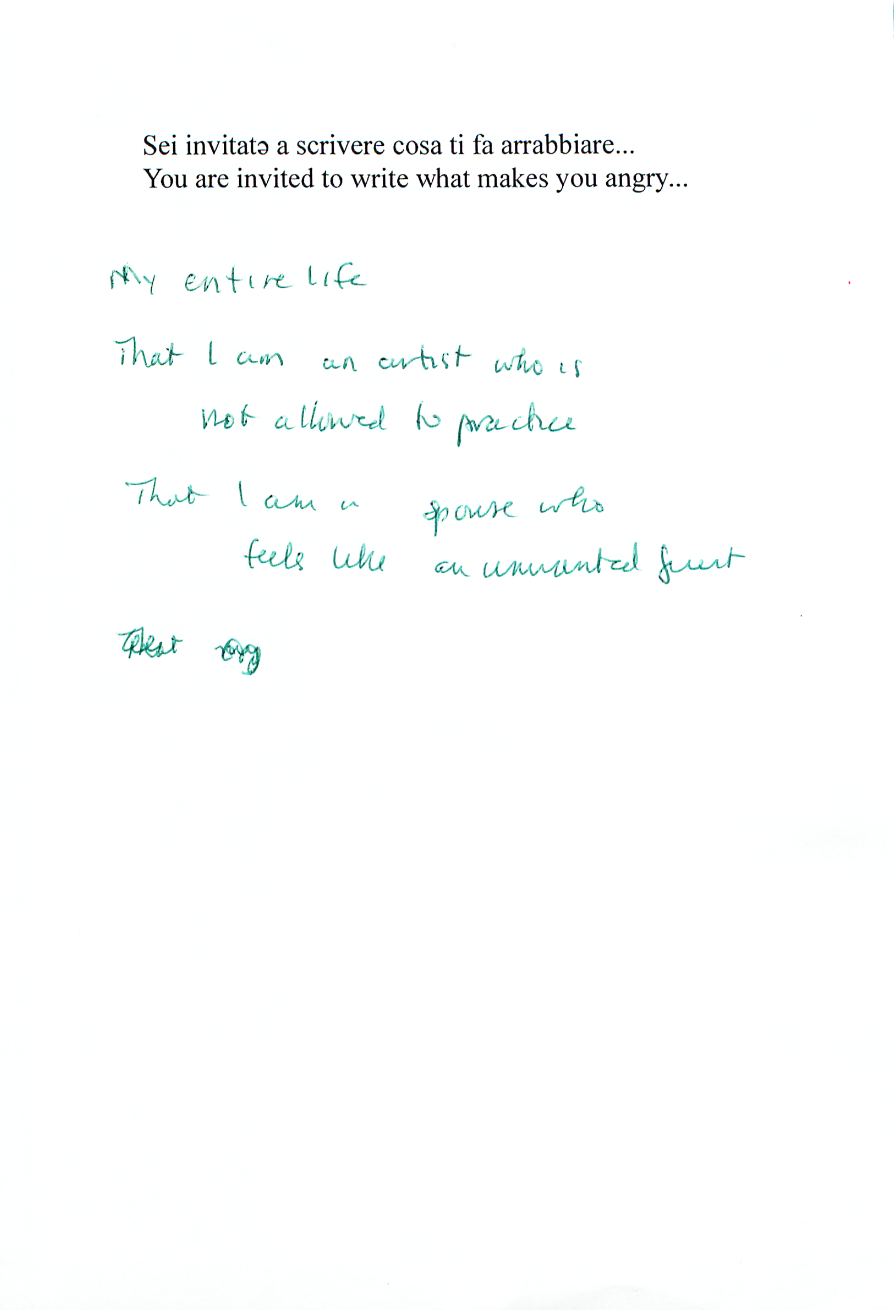 Sei invitatə a scrivere cosa ti fa arrabbiare...
You are invited to write what makes you angry...
My entire life
That I am an artist who is
not allowed to practice
That I am a spouse who
feels like an unwanted guest
That